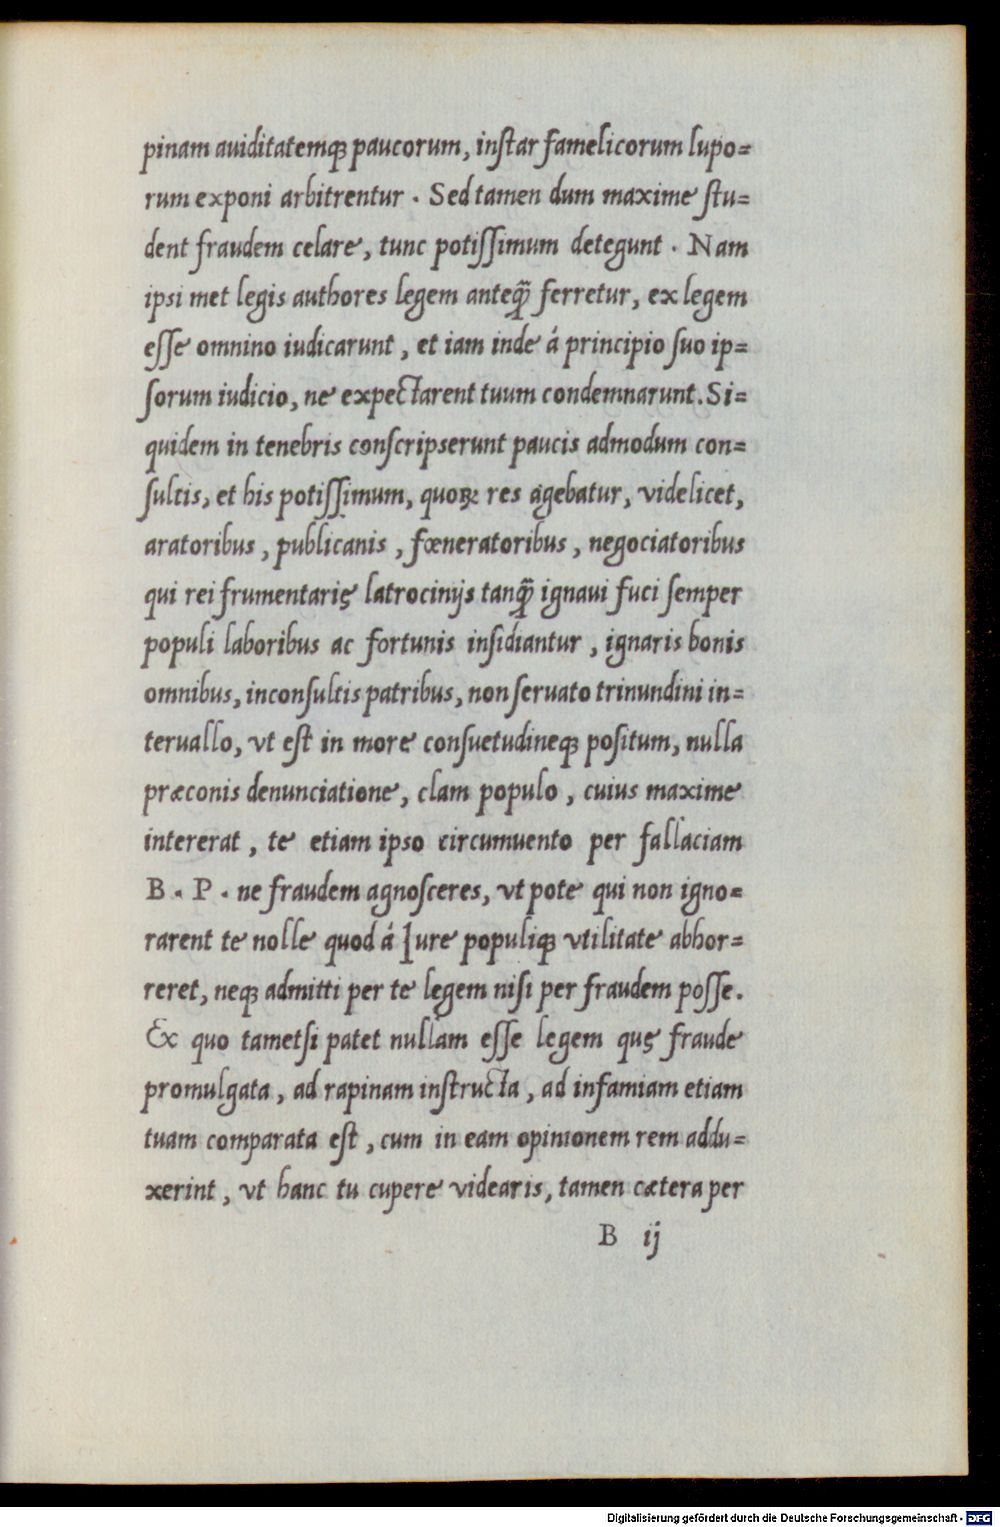 pinam auiditatemqꝫ paucorum, inſtar famelicorum lupo=
rum exponi arbitrentur . Sed tamen dum maxime ſtu=
dent fraudem celare, tunc potiſſimum detegunt . Nam
ipsi met legis authores legem anteq̃ ferretur, ex legem
eſſe omnino iudicarunt, et iam inde á principio ſuo ip=
ſorum iudicio, ne expectarent tuum condemnarunt. Si=
quidem in tenebris conſcripserunt paucis admodum con=
ſultis, et his potiſſimum, quoꝝ res agebatur, videlicet,
aratoribus, publicanis, fœneratoribus, negociatoribus
qui rei frumentarię latrocinijs tanq̃ ignaui fuci ſemper
populi laboribus ac fortunis inſidiantur, ignaris bonis
omnibus, inconſultis patribus, non ſeruato trinundini in=
teruallo, vt eſt in more conſuetudineqꝫ poſitum, nulla
præconis denunciatione, clam populo, cuius maxime
intererat, te etiam ipso circumuento per fallaciam
B . P . ne fraudem agnoſceres, vt pote qui non igno=
rarent te nolle quod á Iure populiqꝫ vtilitate abhor=
reret, neqꝫ admitti per te legem niſi per fraudem poſſe.
Ex quo tametſi patet nullam eſſe legem quę fraude
promulgata, ad rapinam inſtructa, ad infamiam etiam
tuam comparata eſt, cum in eam opinionem rem addu=
xerint, vt hanc tu cupere videaris, tamen cætera per
B ij
Digitalisierung gefördert durch die Deutsche Forschungsgemeinschaft - DFG